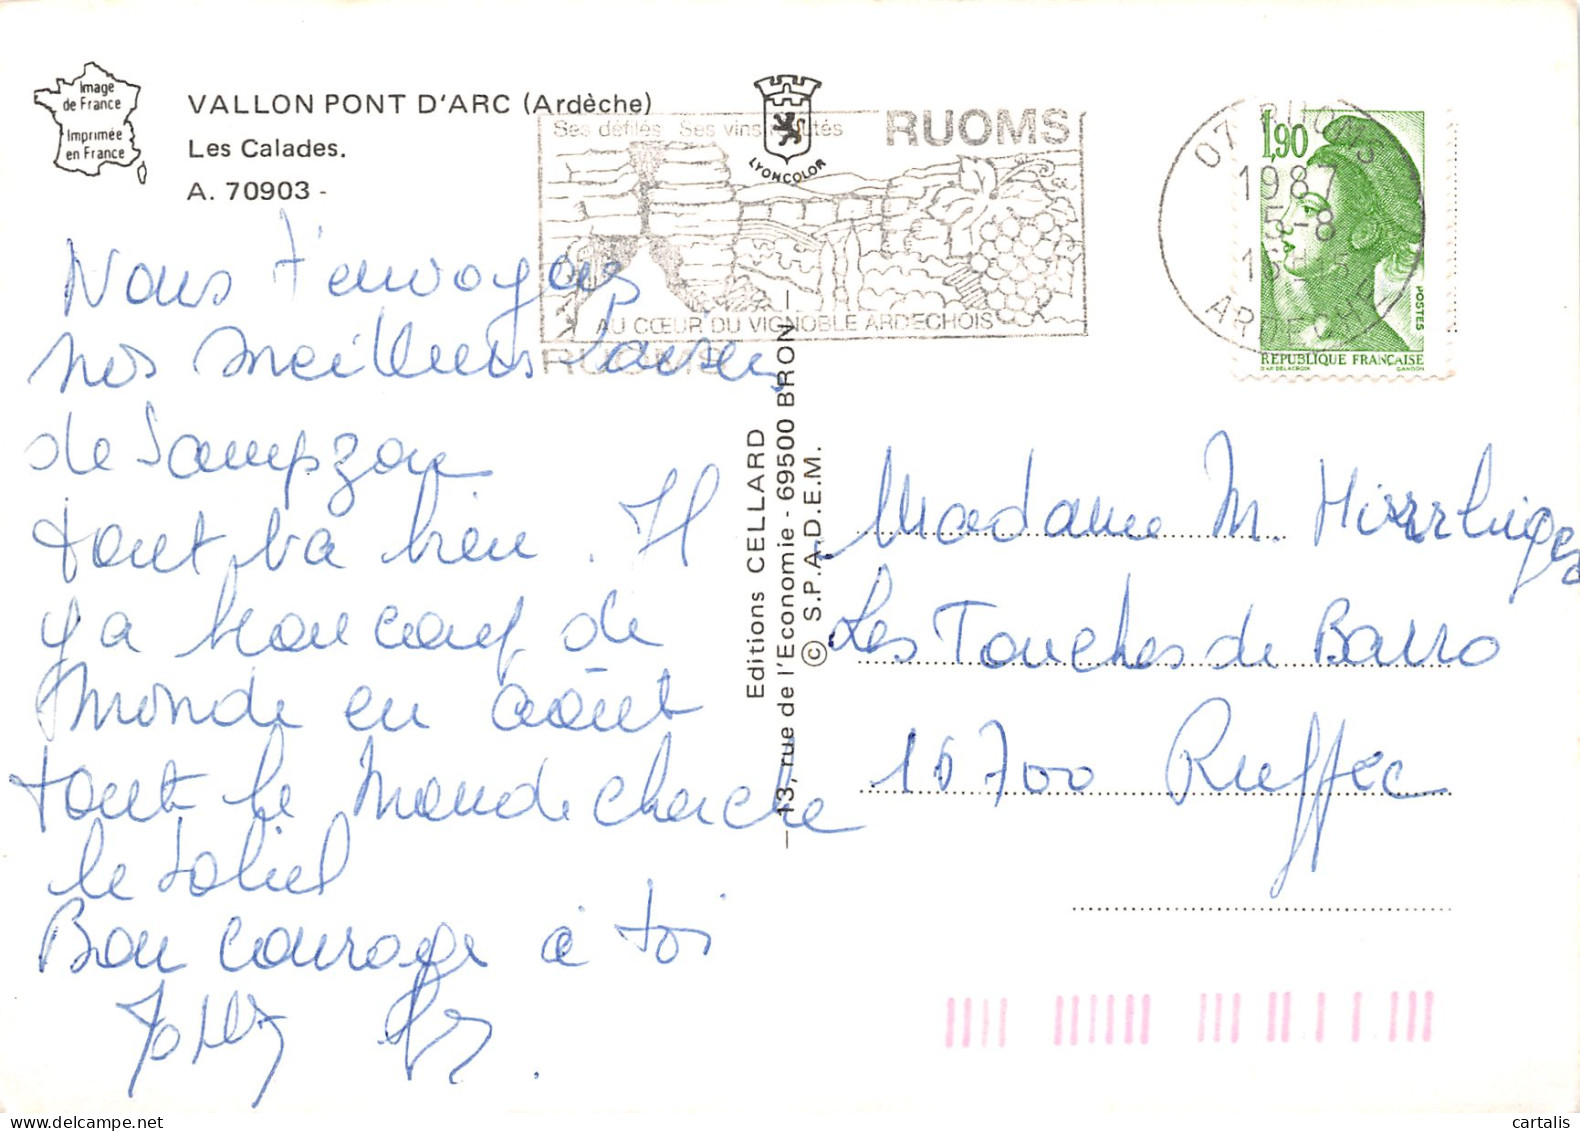 Image
de France
Imprimée
en France
VALLON PONT D'ARC (Ardèche)
Les Calades.
A. 70903 -
LYONCOLOR
Ses défilés Ses vins
RUOMS
AU CŒUR DU VIGNOBLE ARDECHOIS
RUOMS
07 RUOMS
1987
5-8
ARDECHE
1,90
POSTES
REPUBLIQUE FRANÇAISE
D'AP. DELACROIX GANDON
Nous t'envoyons
nos meilleurs baisers
de Sampzon
tout va bien. Il
y a beaucoup de
monde en août
tout le Monde cherche
le soleil
Bon courage à toi
Editions CELLARD
— 13, rue de l'Economie - 69500 BRON —
© S.P.A.D.E.M.
Madame M.
Les Touches de Barro
16700 Ruffec
cartalis
delcampe.net